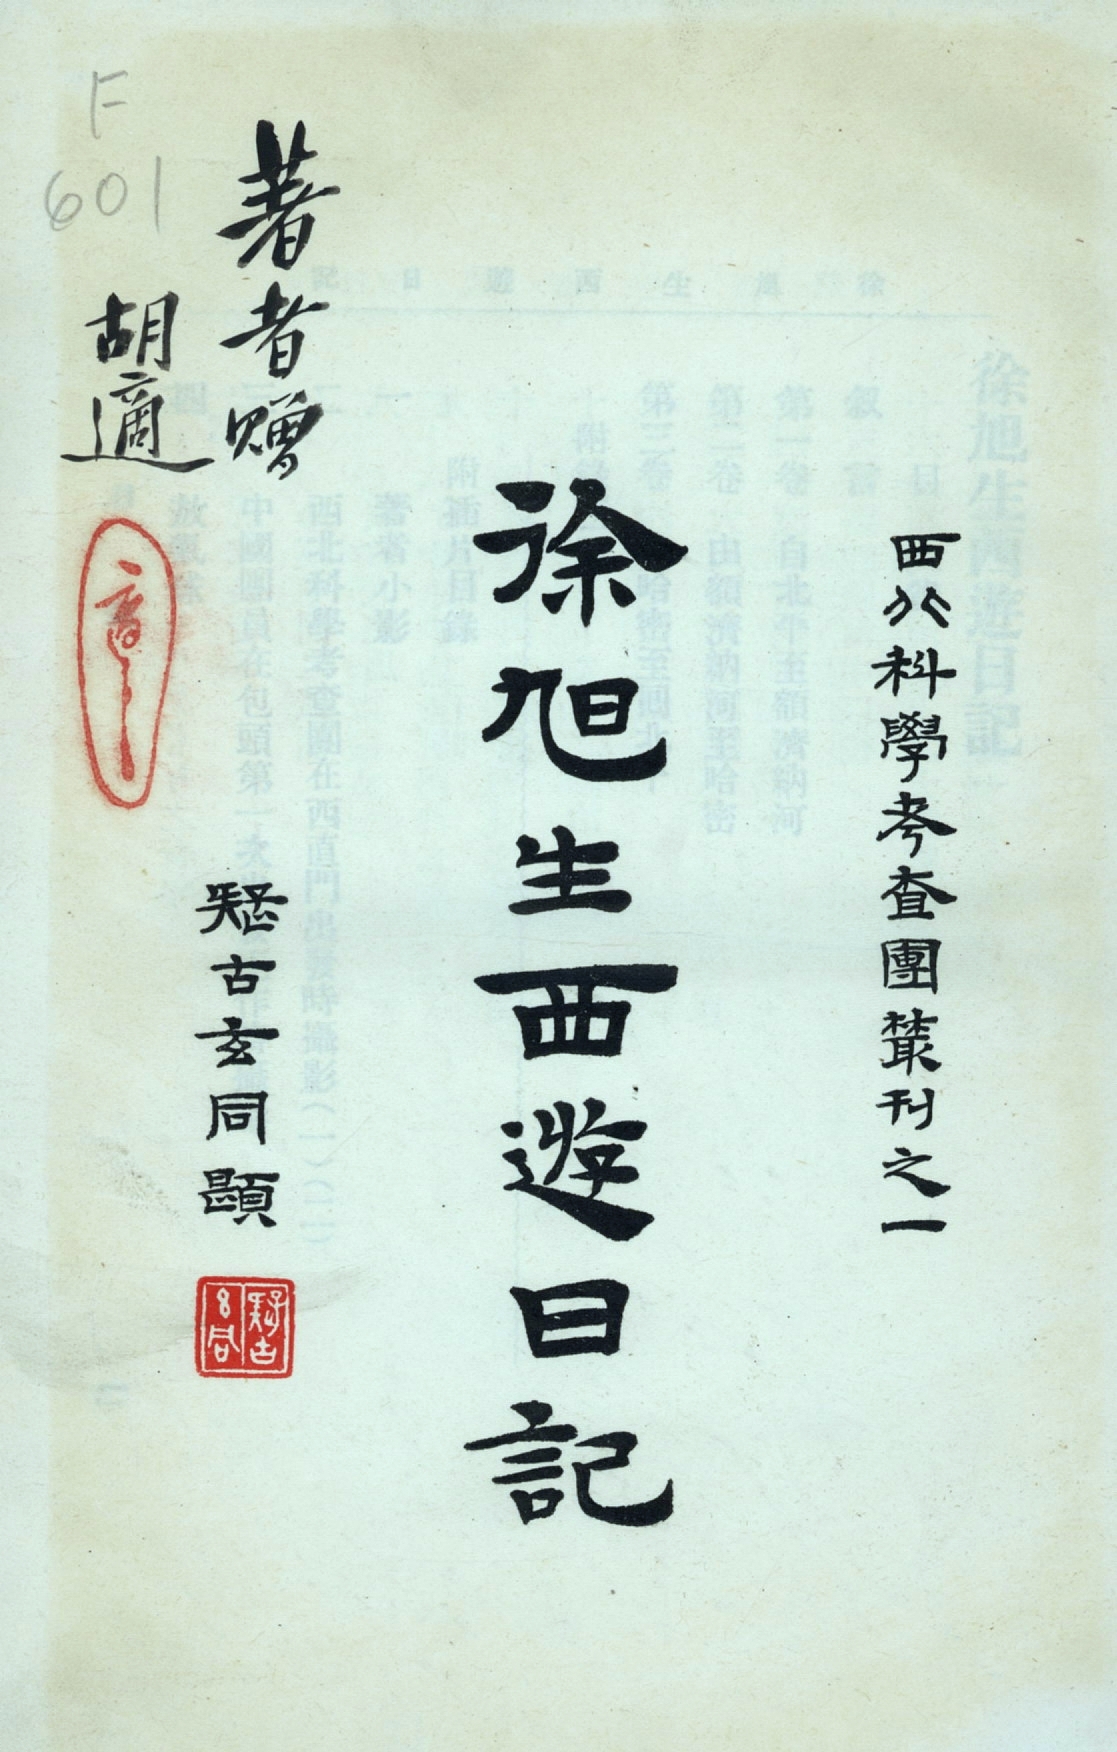 西北科學考查團叢刊之一
徐旭生西遊日記
疑古玄同題
著者贈
胡適
F
601
疑古玄同